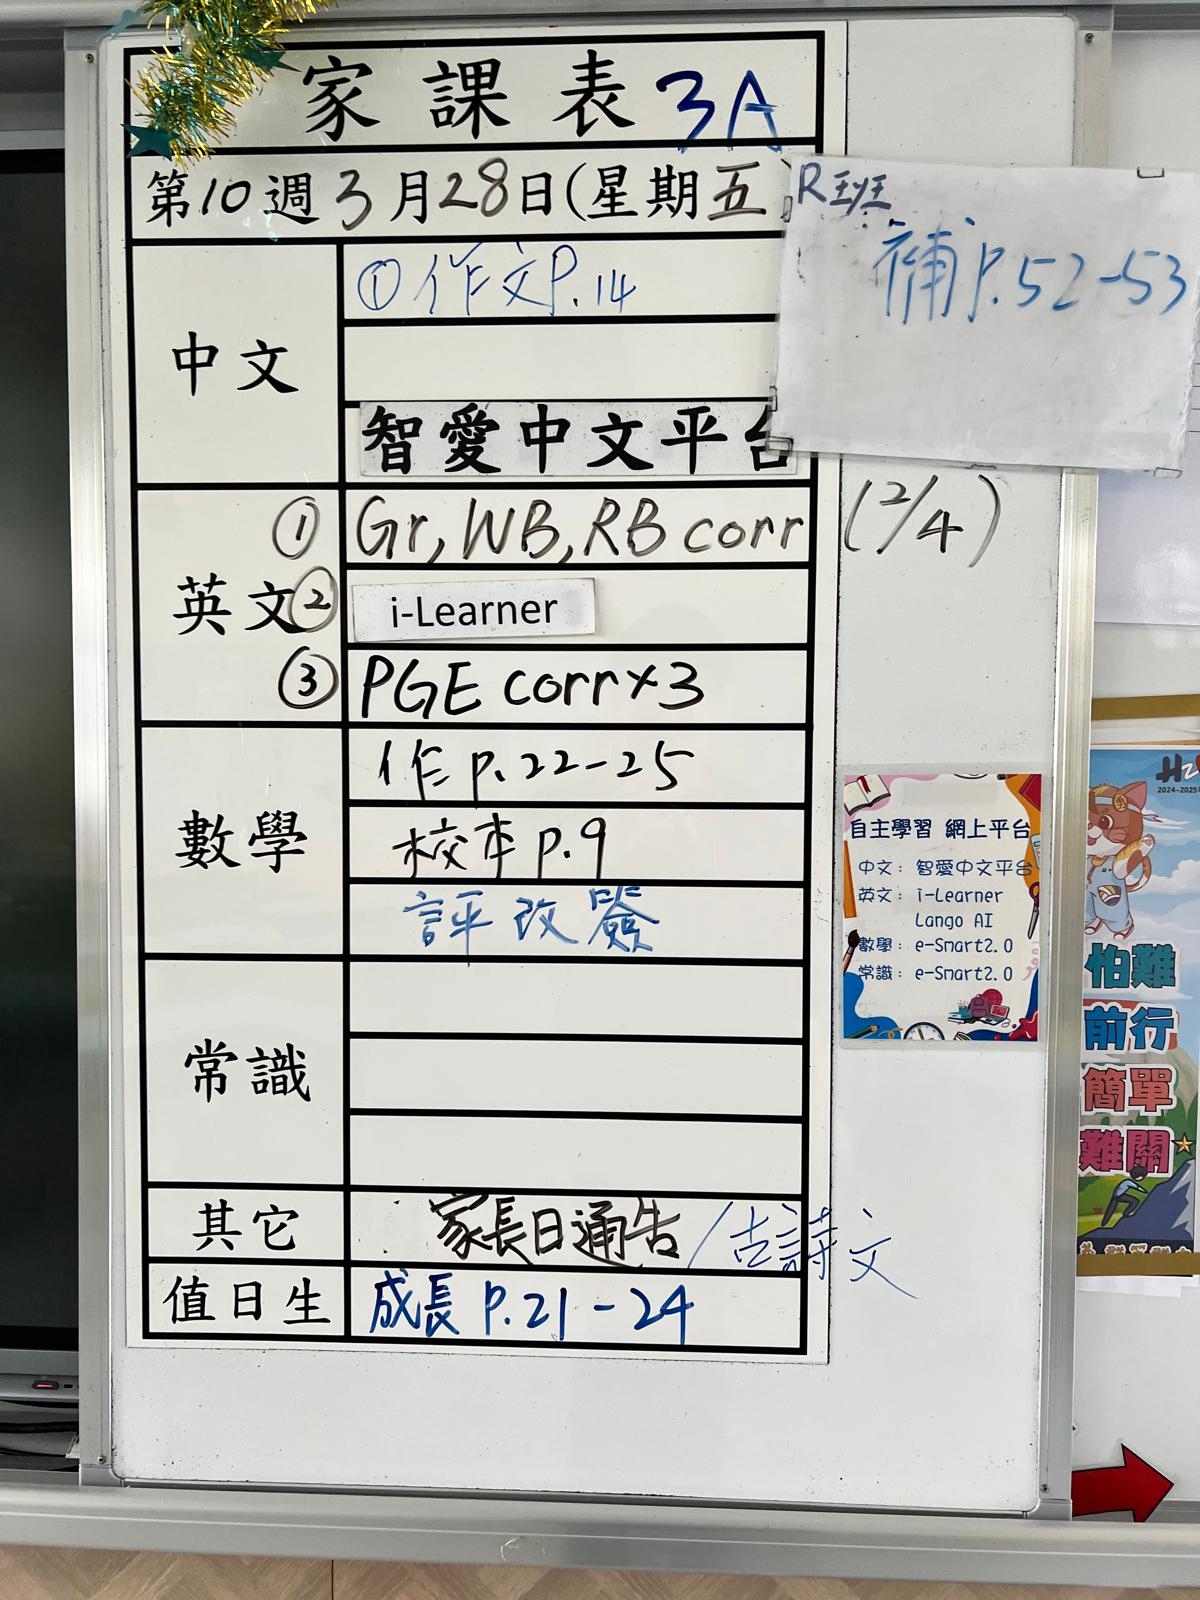 家課表 3A
第10週3月28日(星期五
R班
補P.52-53
中文
①作文P.14
智愛中文平台
英文
① Gr, WB, RB corr (2/4)
② i-Learner
③ PGE corr×3
數學
作 p.22-25
校本 p.9
評改簽
常識
其它
家長日通告/古詩文
值日生
成長 P.21-24
自主學習 網上平台
中文: 智愛中文平台
英文: i-Learner
Lango AI
數學: e-Smart2.0
常識: e-Smart2.0
2024-2025
怕難
前行
簡單
難關